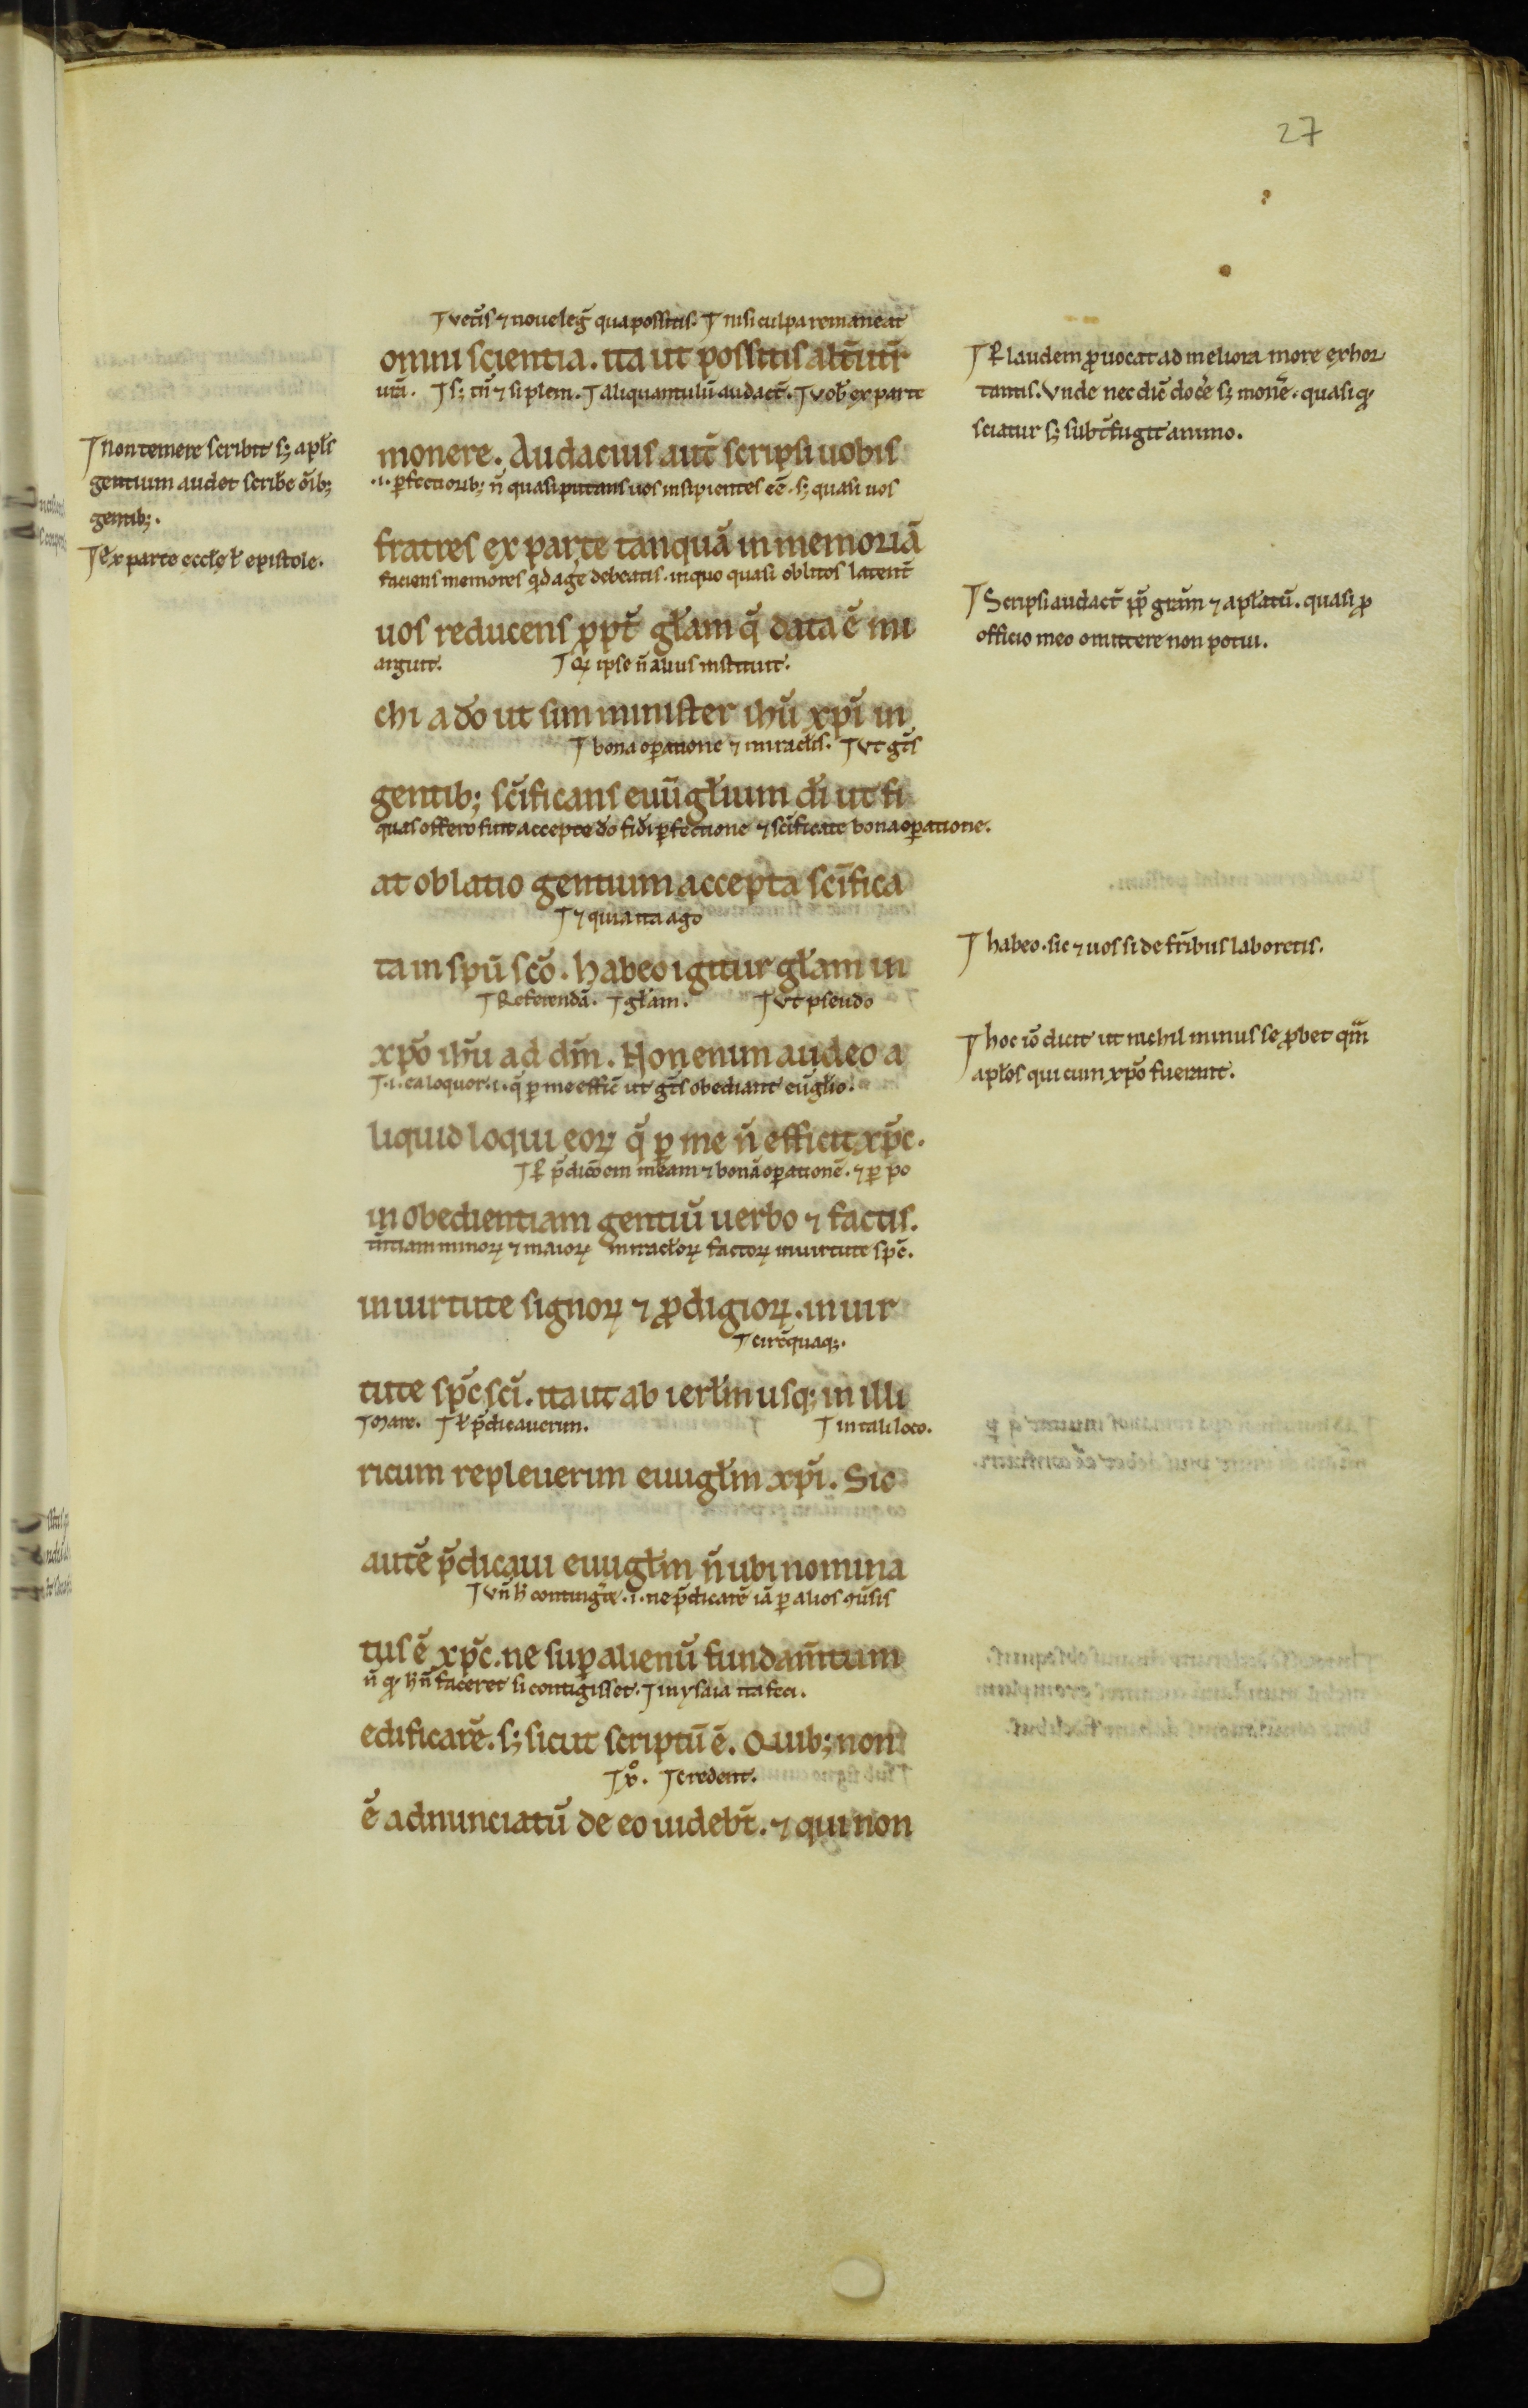 27
⁊ vet̄is ⁊ noue leg̃ qua possitis. ⁊ nisi culpa remaneat
omni scientia. ita ut possitis alt̄utr̄
urā. ⁊ s; tn̄ ⁊ si plem. ⁊ aliquantulū audact̄. ⁊ vob ex parte
monere. Audacius aut̄ scripsi uobis
.i. ꝑfectiorib; n̄ quasi putans uos insipientes eē. s; quasi uos
fratres ex parte tanquā in memoriā
faciens memores qd agere debeatis. in quo quasi oblitos latent̄
uos reducens ꝓpt̄ gr̄am q̄ data ē mi
arguit. ⁊ Qꝫ ipse n̄ alius instituit.
chi a dō ut sim minister ih̄u xp̄i in
⁊ bona oꝑatione ⁊ miracl̄is. ⁊ Vt gt̄s
gentib; sc̄ificans euūgl̄ium dī ut fi
quas offero sint accepte dō fidī ꝑfectione ⁊ sc̄ificate bona oꝑatione.
at oblatio gentium accepta sc̄ifica
⁊ ⁊ quia ita ago
ta in sp̄u sc̄o. habeo igitur gl̄am in
⁊ Referendā. ⁊ gl̄am. ⁊ Vt pseudo
xp̄o ih̄u ad dm̄. Non enim audeo a
⁊ .i. ea loquor .i. q̄ ꝑ me effic̄ ut gt̄s obediant eugl̄io.
liquid loqui eoꝝ q̄ ꝑ me n̄ efficit xp̄c.
⁊ ꝑ p̄dicōem meam ⁊ bonā oꝑationē. ⁊ ꝑ po
in obedientiam gentiū uerbo ⁊ factis.
tn̄tiam minoꝝ ⁊ maioꝝ miracl̄oꝝ factoꝝ in uirtute spc̄.
in uirtute signoꝝ ⁊ ꝓdigioꝝ. in uir
⁊ circ̄quaq;.
tute sp̄c sc̄i. ita ut ab ierl̄m usq; in illi
⁊ Mare. ⁊ ł p̄dicauerim. ⁊ in tali loco.
ricum repleuerim euugl̄m xp̄i. Sic
autē p̄dicaui euugl̄m n̄ ubi nomina
⁊ Vn̄ h̄ contingr̄e .i. ne p̄dicarē iā ꝑ alios 9ūsis
tus ē xp̄c. ne suꝑ alienū fundam̄tum
n̄ qꝫ h̄ n̄ faceret si contigisset. ⁊ in ysaia ita feci.
edificarē. s; sicut scriptū ē. Quib; non
⁊ xº. ⁊ credent.
ē adnunciatū de eo uidebt̄. ⁊ qui non
⁊ Non temere scribit s; apl̄s
gentium audet scribe ōib;
gentib;.
⁊ Ex parte eccl̄e ł epistole.
⁊ ꝑ laudem ꝓuocat ad meliora more exhor
tantis. Vnde nec diē docēe s; monēe. quasi qꝫ
sciatur s; subt̄fugit animo.
⁊ Scripsi audact̄ ꝓp̄ gr̄am ⁊ apl̄atū. quasi ꝓ
officio meo omittere non potui.
⁊ habeo. sic ⁊ uos si de fr̄ibus laboretis.
⁊ hoc iō dicit ut nichil minus se ꝓbet qm̄
apl̄os qui cum xp̄o fuerunt.